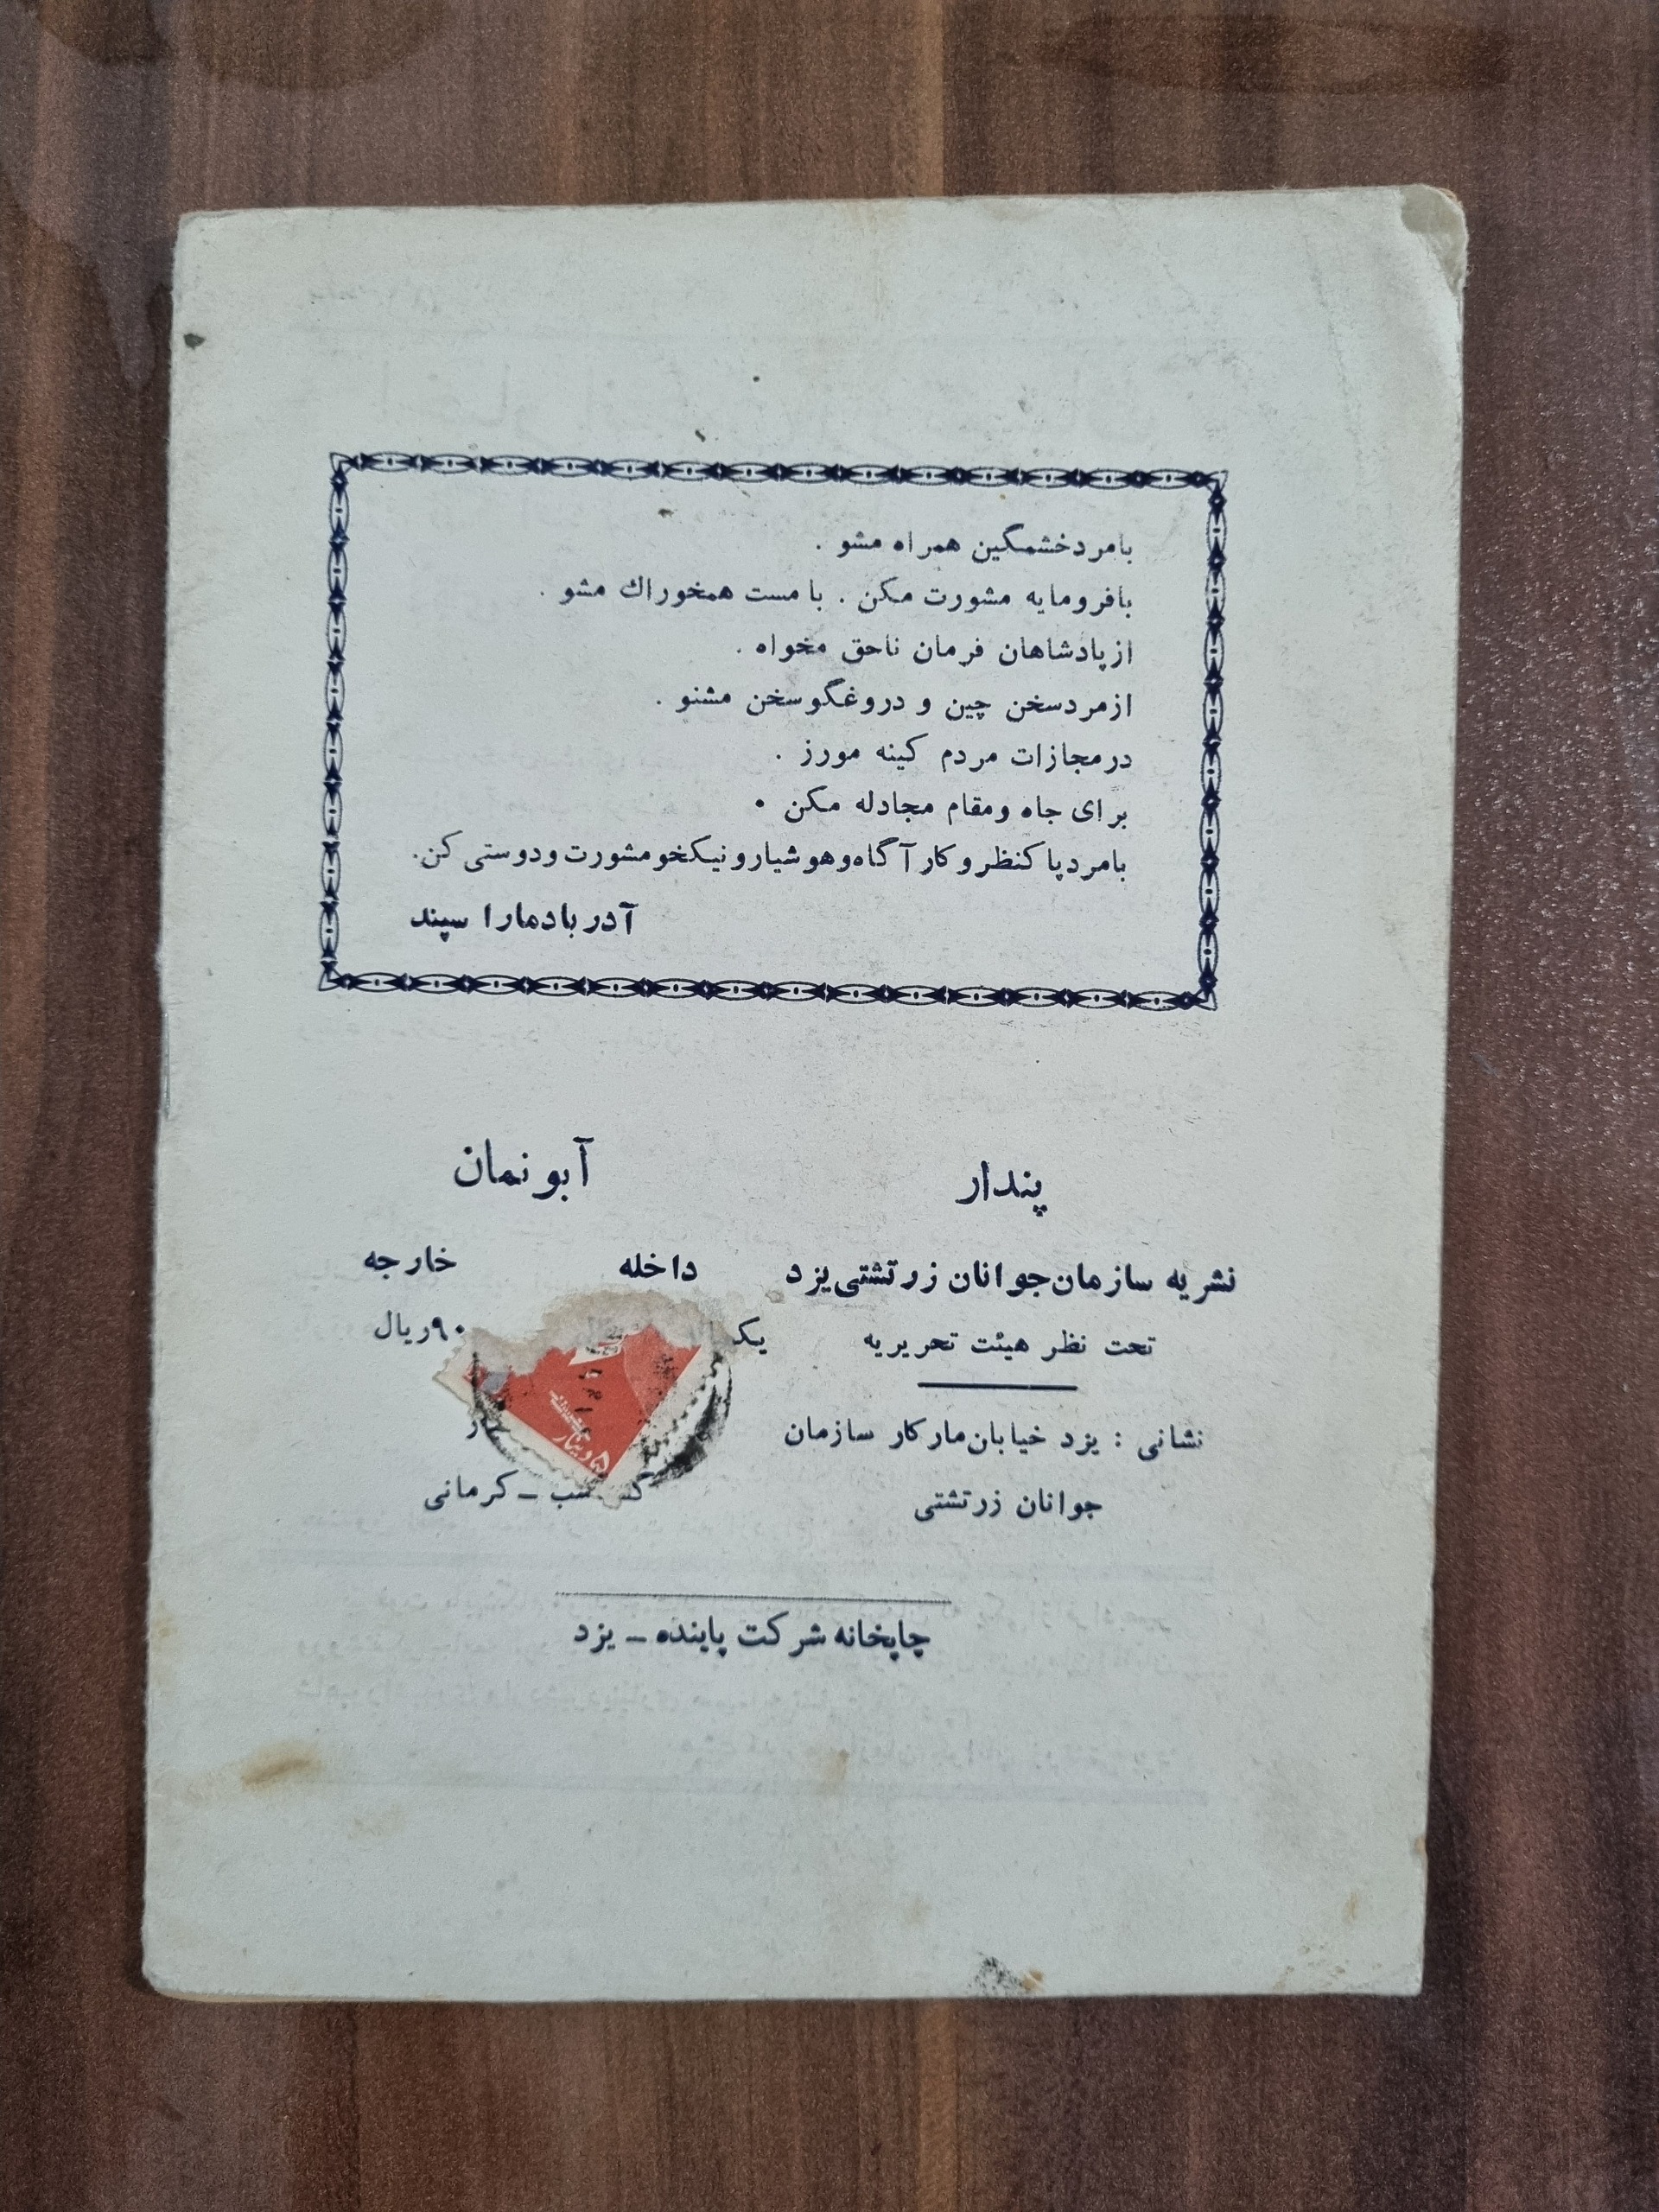 بامرد خشمگین همراه مشو .
بافرومایه مشورت مکن . بامست همخوراك مشو .
ازپادشاهان فرمان ناحق مخواه .
ازمرد سخن چین و دروغگو سخن مشنو .
درمجازات مردم کینه مورز .
برای جاه ومقام مجادله مکن .
بامرد پاکنظر و کارآگاه و هوشیار و نیکخو مشورت و دوستی کن.
آدربادمارا سپند
پندار
نشریه سازمان جوانان زرتشتی یزد
تحت نظر هیئت تحریریه
نشانی : یزد خیابان مارکار سازمان
جوانان زرتشتی
آبونمان
داخله خارجه
۹۰ریال
۵ دینار
ـ کرمانی
چاپخانه شرکت پاینده ـ یزد